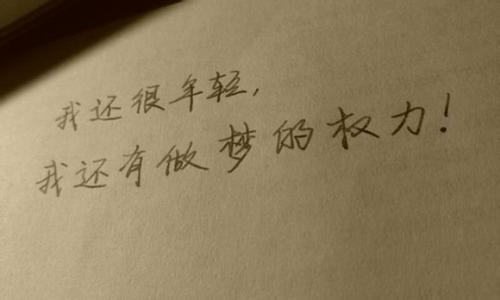 我还很年轻，
我还有做梦的权力！